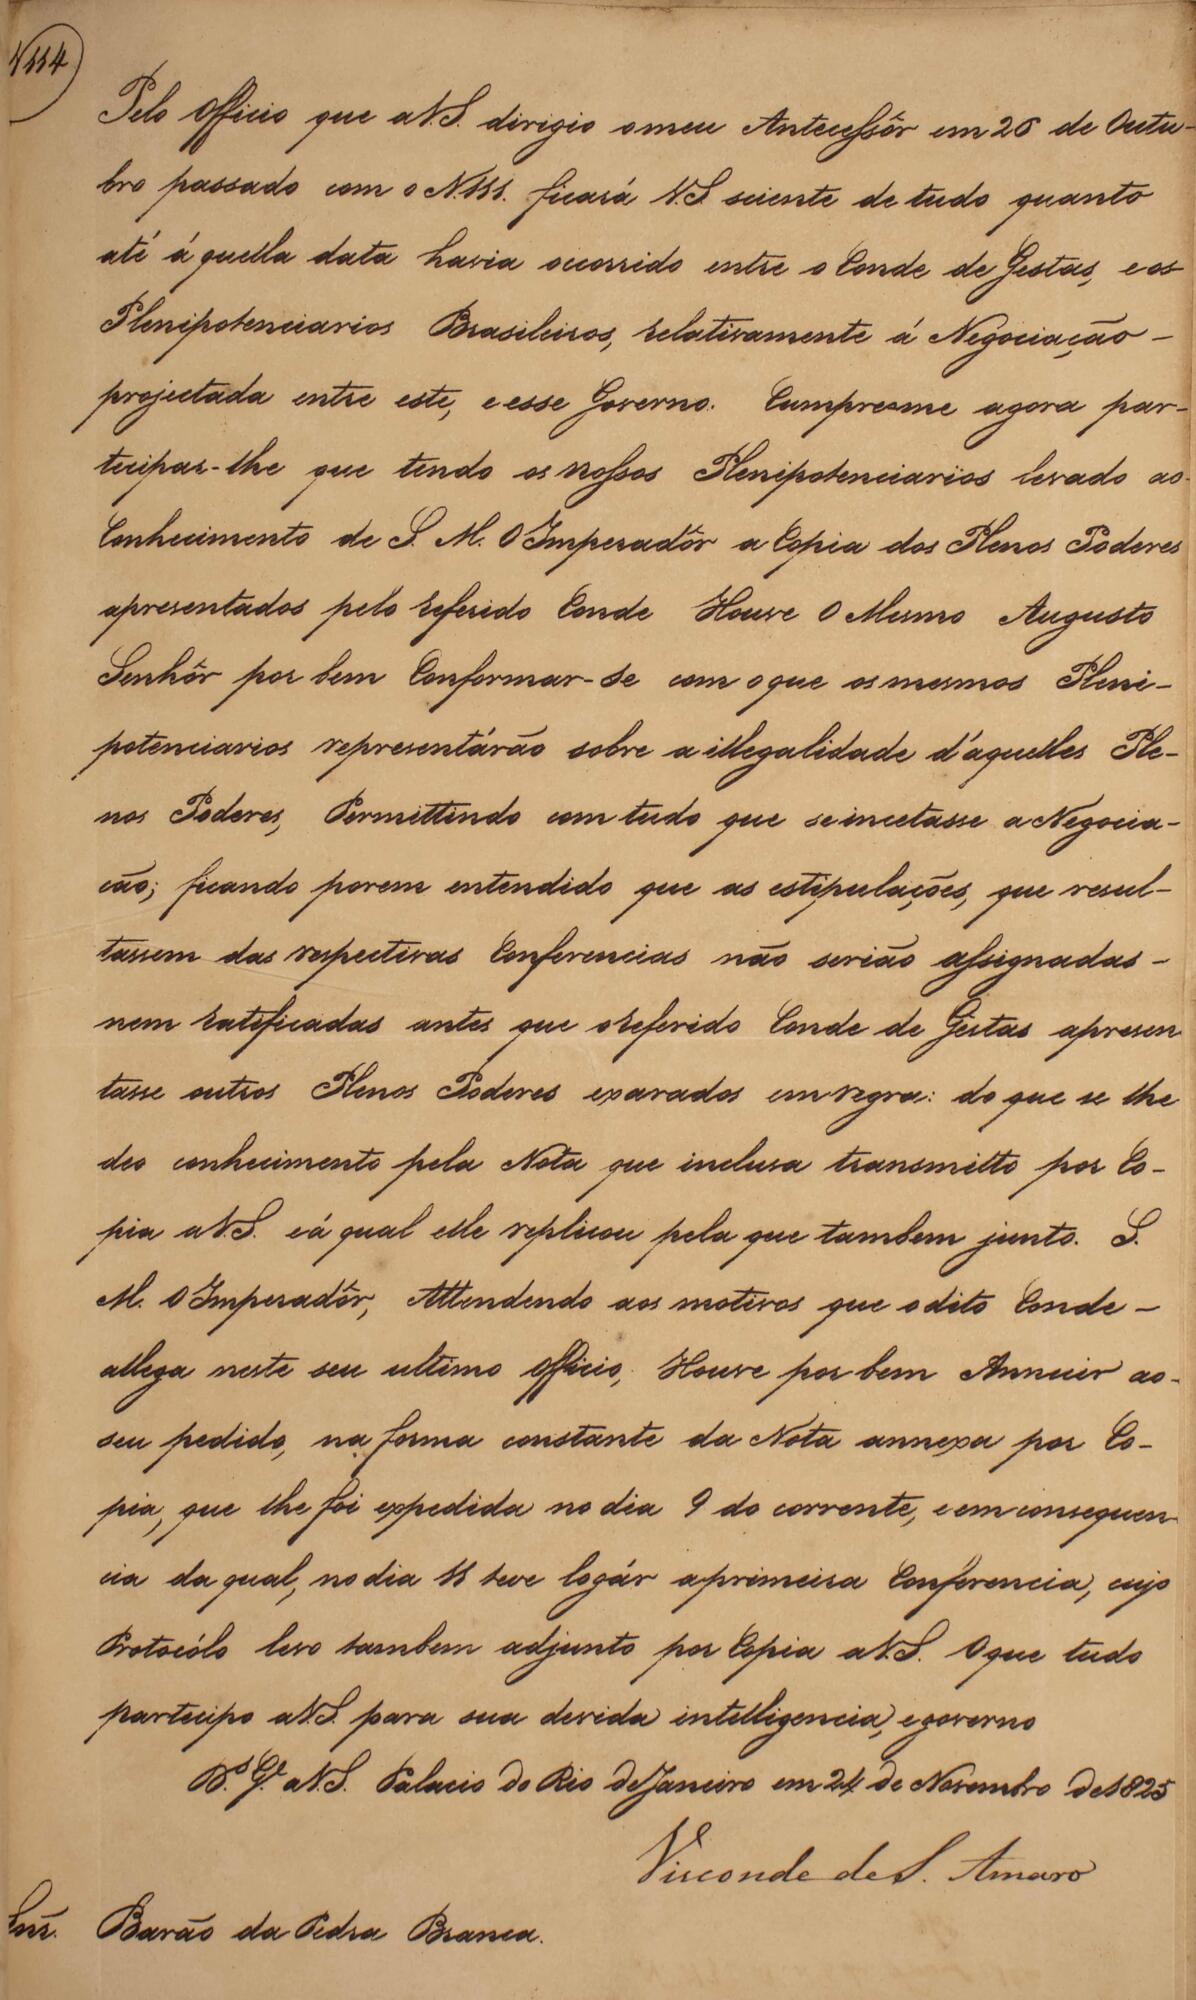 N 114
Pelo Officio que a V.S. dirigio o meu Antecessôr em 26 de Outu-
bro passado com o N. 111. ficará V.S. sciente de tudo quanto
até áquella data havia occorrido entre o Conde de Gestas, e os
Plenipotenciarios Brasileiros, relativamente á Negociação -
projectada entre este, e esse Governo. Cumpre-me agora par-
tecipar-lhe que tendo os nossos Plenipotenciarios levado ao
Conhecimento de S. M. O Imperadôr a Copia dos Plenos Poderes
apresentados pelo referido Conde Houve O Mesmo Augusto
Senhôr por bem Conformar-Se com o que os mesmos Pleni-
potenciarios representárão sobre a illegalidade d'aquelles Ple-
nos Poderes, Permittindo com tudo que se incetasse a Negocia-
cão; ficando porem entendido que as estipulações, que resul-
tassem das respectivas Conferencias não serião assignadas -
nem ratificadas antes que o referido Conde de Gestas apresen
tasse outros Plenos Poderes exarados em regra: do que se lhe
deo conhecimento pela Nota que inclusa transmitto por Co-
pia a V.S. e á qual elle replicou pela que tambem junto. S.
M. O Imperadôr, Attendendo aos motivos que o dito Conde -
allega neste seu ultimo Officio, Houve por bem Annuir ao-
seu pedido, na forma constante da Nota annexa por Co-
pia, que lhe foi expedida no dia 9 do corrente, e em consequen-
cia da qual, no dia 11 teve logár a primeira Conferencia, cujo
Protocólo levo tambem adjunto por Copia a V.S. O que tudo
partecipo a V.S. para sua devida intelligencia, e governo
D.s G.e a V.S. Palacio do Rio de Janeiro em 24 de Novembro de 1825
Visconde de S. Amaro
Snr. Barão da Pedra Branca.